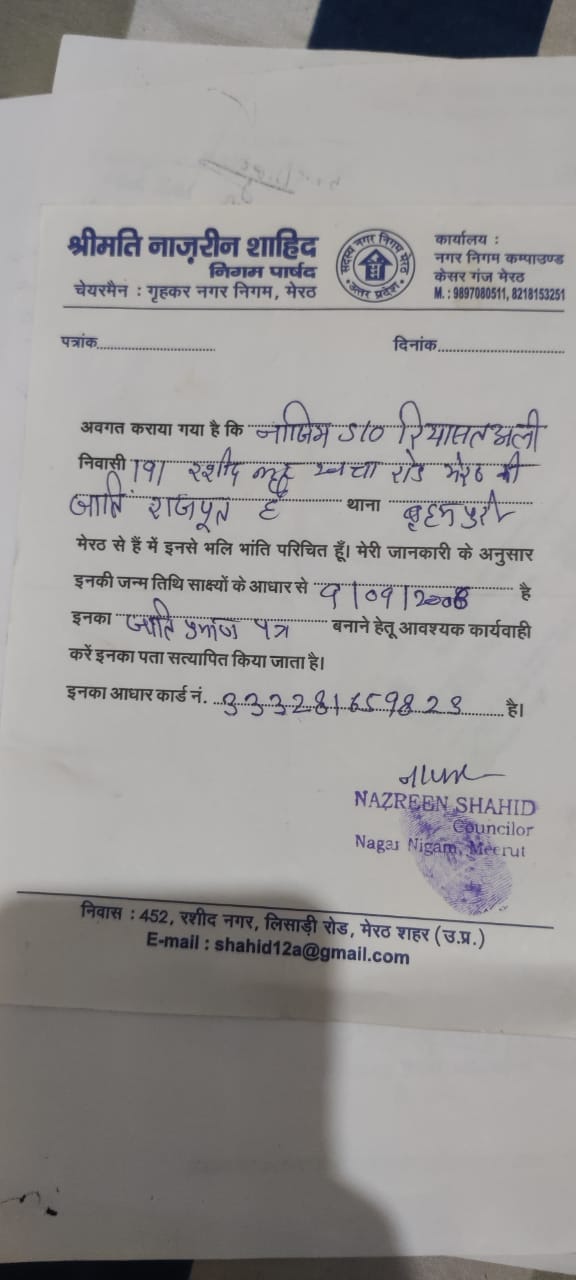 श्रीमति नाज़रीन शाहिद
निगम पार्षद
चेयरमैन : गृहकर नगर निगम, मेरठ
सदस्य नगर निगम मेरठ
उत्तर प्रदेश
कार्यालय :
नगर निगम कम्पाउण्ड
केसर गंज मेरठ
M. : 9897080511, 8218153251
पत्रांक
दिनांक
अवगत कराया गया है कि नाजिम S/O रियासत अली
निवासी 191 रशीद नगर खत्ता रोड मेरठ की
जाति राजपूत है थाना ब्रहमपुरी
मेरठ से हैं में इनसे भलि भांति परिचित हूँ। मेरी जानकारी के अनुसार
इनकी जन्म तिथि साक्ष्यों के आधार से 9/09/2008 है
इनका जाति प्रमाण पत्र बनाने हेतू आवश्यक कार्यवाही
करें इनका पता सत्यापित किया जाता है।
इनका आधार कार्ड नं. 333281659823 है।
NAZREEN SHAHID
Councilor
Nagar Nigam, Meerut
निवास : 452, रशीद नगर, लिसाड़ी रोड, मेरठ शहर (उ.प्र.)
E-mail : shahid12a@gmail.com